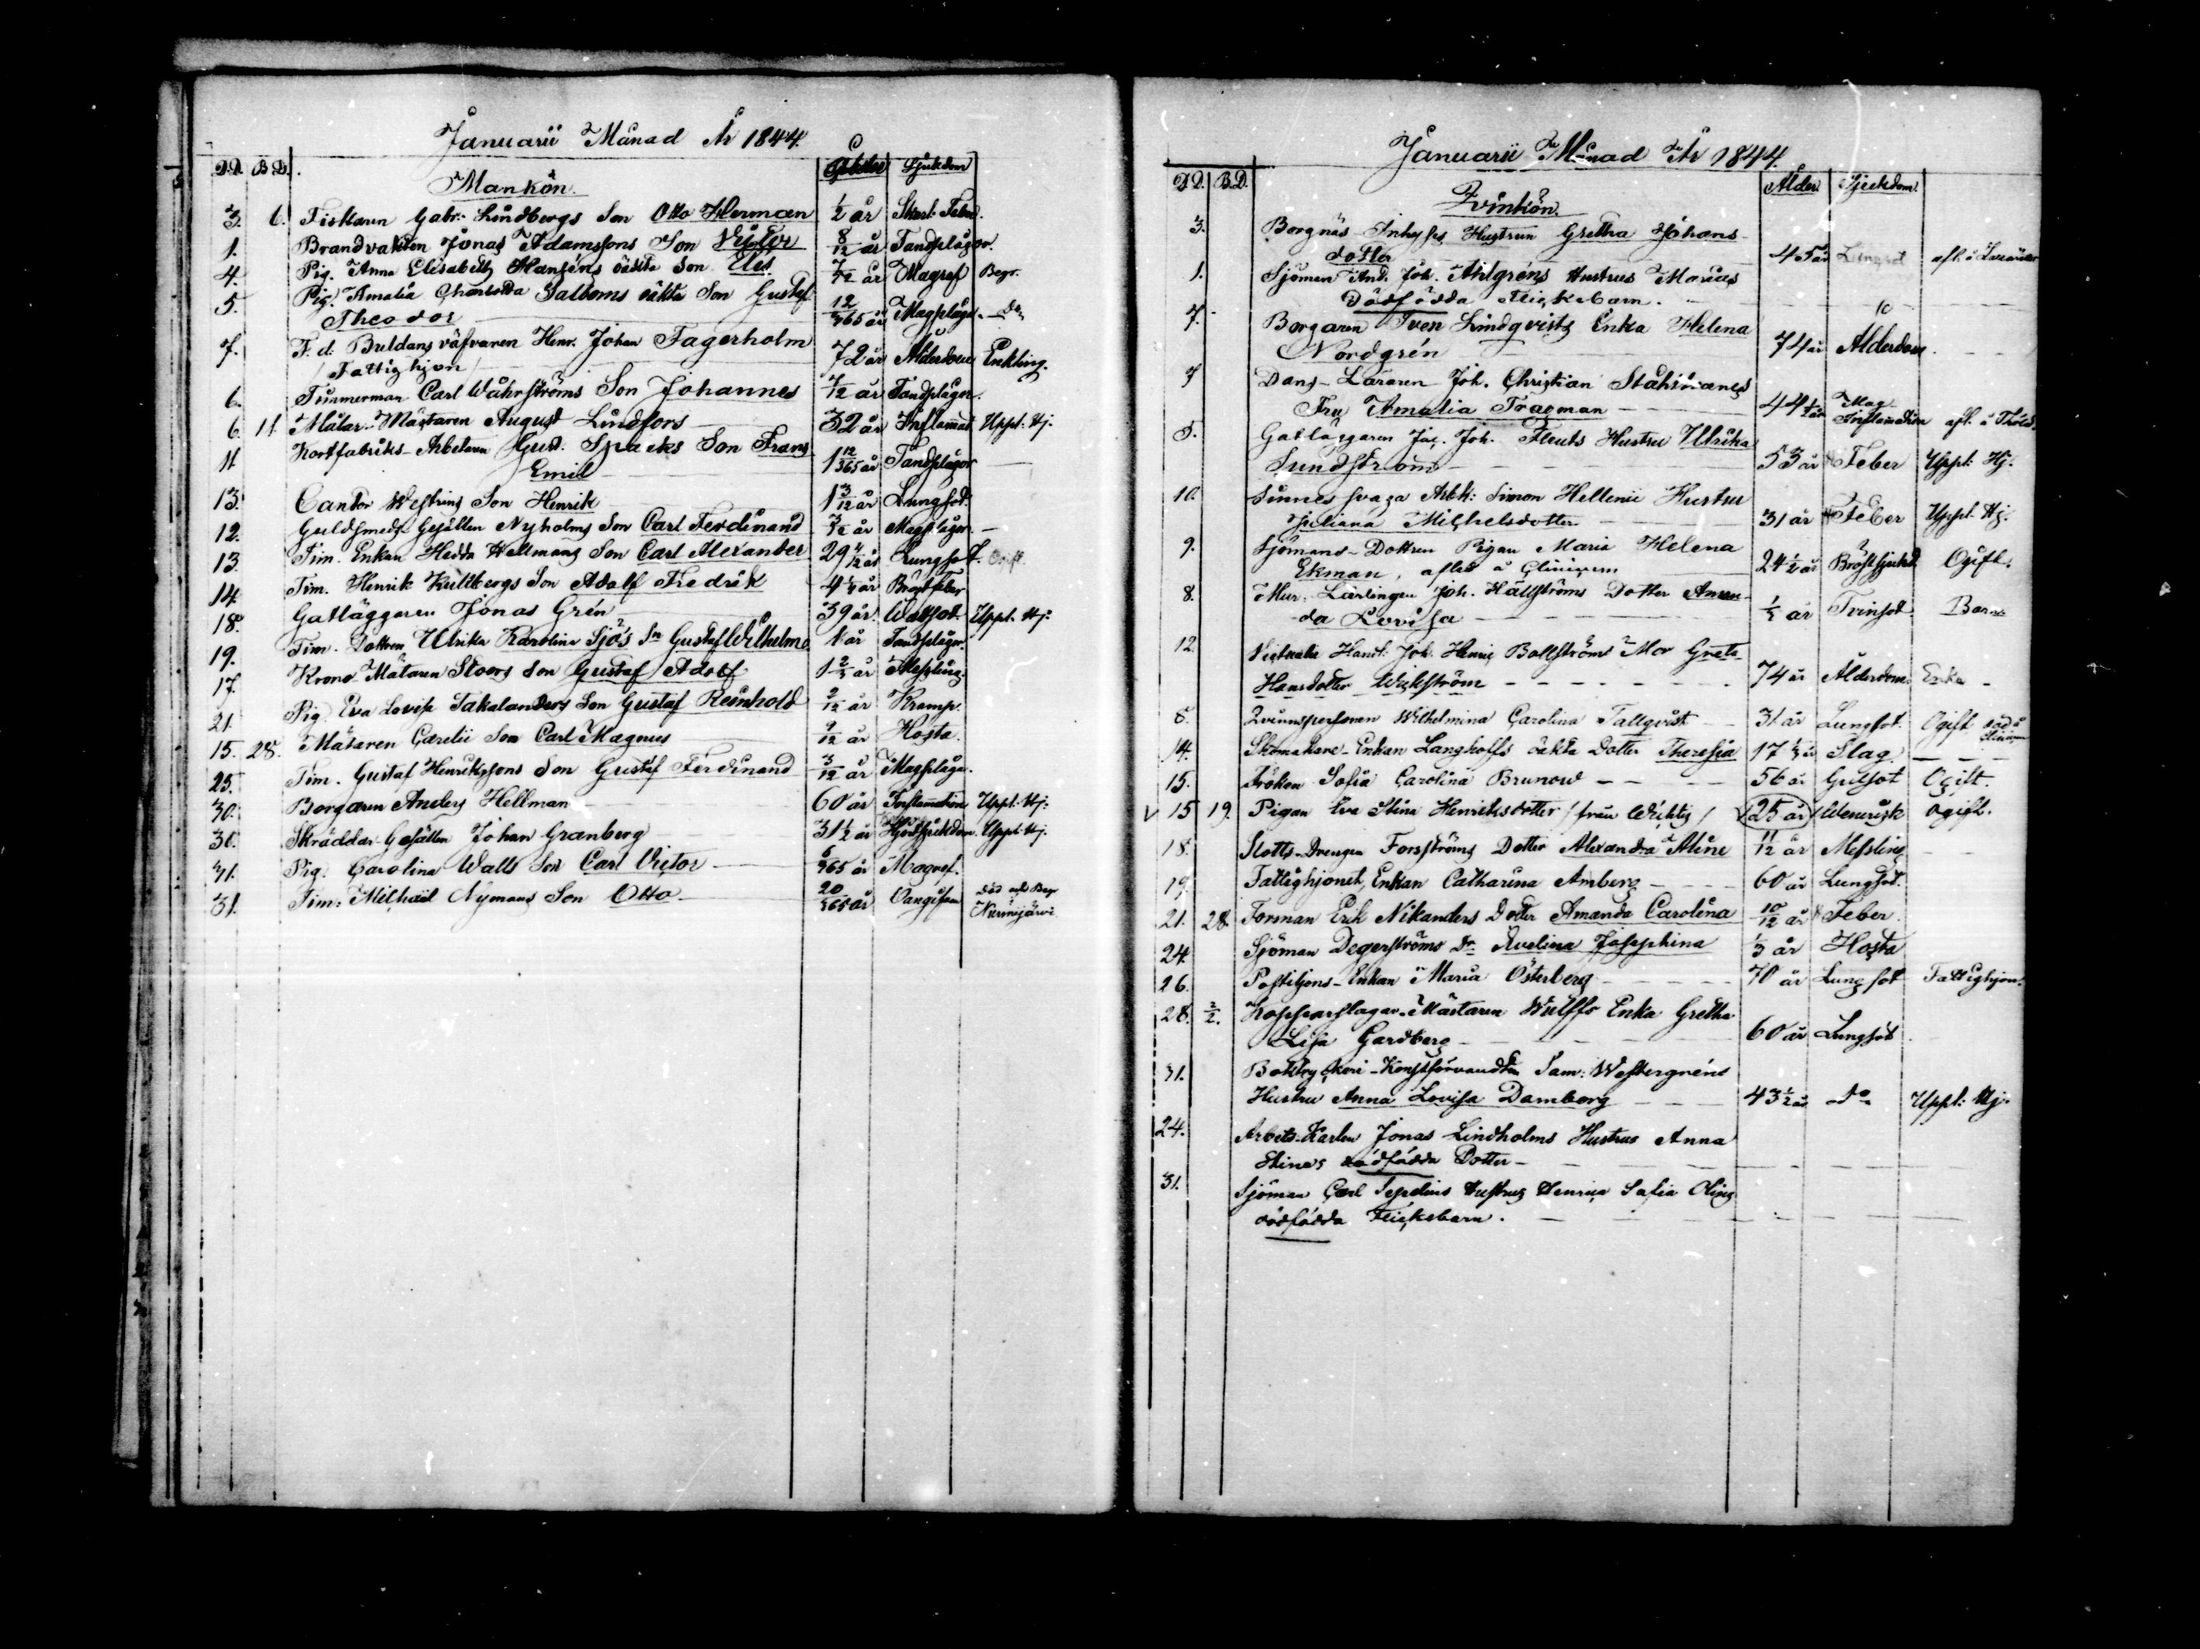 Januarii Månad År 1844.
D.D. B.D. Ålder Sjukdom
Mankön.
3. 6. Fiskaren Gabr. Lindbergs Son Otto Herman 1/2 år Skarl. Feber.
1. Brandvakten Jonas Adamssons Son Victor 8/12 år Tandplågor.
4. Pig. Anna Elisabeth Hanséns oäkta Son 7/12 år Magref Begr.
5. Pig. Amalia Charlotta Salboms oäkta Son Gustaf
Theodor 12/365 år Magplågor do
7. F. d. Buldans väfvaren Henr. Johan Fagerholm
/Fattighjon/ 72 år Ålderdom Enkling.
6. Timmerman Carl Wåhrströms Son Johannes 7/12 år Tandplågor.
6. 11 Målar-Mästaren August Lindfors 32 år Inflamat. Uppl. Hj.
11 Kortfabriks-Arbetaren Gust. Spacks Son Frans
Emil 1 12/365 år Tandplågor
13. Cantor Westrins Son Henrik 1 3/12 år Lungsot.
12. Guldsmeds-Gesällen Nyholms Son Carl Ferdinand år Magplågor
13 Tim. Enkan Hedda Wellmans Son Carl Alexander 29 år Lungsot. Ogift
14. Tim. Henrik Kullbergs Son Adolf Fredrik år Bröstfeber
18. Gatläggaren Jonas Grén 39 år Wattsot. Uppl. Hj.
19. Tim. Dottren Ulrika Karolina Sjös Sn Gustaf Wilhelm 1 år Tandplågor.
17. Krono-Mätaren Stoors Son Gustaf Adolf år Messling.
21. Pig. Eva Lovisa Sakalanders Son Gustaf Reinhold 2/12 år Kramp.
15. 28. Mätaren Carelii Son Carl Magnus 9/12 år Hosta.
25. Tim. Gustaf Henrikssons Son Gustaf Ferdinand 3/12 år Magplågor.
30. Borgaren Anders Hellman 60 år Inflamation Uppl. Hj.
30. Skräddar-Gesällen Johan Granberg 31 1/2 år Uppl. Hj.
31. Pig. Carolina Walls Son Carl Victor 6/365 år Magref.
31. Tim. Michael Nymans Son Otto 20/365 år Död och Begr.
Nurmijärvi
Januarii Månad År 1844.
D.D. B.D. Ålder Sjukdom
Qvinkön.
3. Borgnäs Inhyses Hustrun Gretha Johans-
dotter 45 år Lungsot
1. Sjöman And. Joh. Ahlgréns Hustrus Marias
Dödfödda Flickebarn.
7. Borgaren Sven Lindqvists Enka Helena
Nordgrén 74 år Ålderdom
7 Dans-Läraren Joh. Christian Ståhlvanes
Fru Amalia Tragman 44 1/2 år Mag
Inflamation
5. Gatläggaren Jac. Joh. Flenks Hustru Ulrika
Sundström 53 år Feber Uppl. Hj.
10. Arbk. Simon Hellenii Hustru
Juliana Michelsdotter 31 år Feber Uppl. Hj.
9. Sjömans-Dottren Pigan Maria Helena
Ekman, afled å Clinicum 24 1/2 år Bröstsjukd. Ogift.
8. Mur. Lärlingen Joh. Hällströms Dotter Aman-
da Lovisa år Tvinsot Barn
12 Victualie Handl. Joh. Henric Bollströms Mor Greta
Hansdotter Wickström 74 år Ålderdom. Enka
8. Qvinnspersonen Wilhelmina Carolina Tallqvist 31 år Lungsot. Ogift död å
Clinicum
14. Skomakare-Enkan Langhoffs oäkta Dotter Theresia 17 år Slag.
15. Fröken Sofia Carolina Brunow 56 å. Gulsot Ogift.
15 19. Pigan Eva Stina Henriksdotter /från Wichtis/ 25 år Wenerisk ogift.
18. Slotts-Drengen Forströms Dotter Alexandra Aline 11/12 år Messling
19. Fattighjonet, Enkan Catharina Amberg 60 år Lungsot.
21. 28. Forman Erik Nikanders Dotter Amanda Carolina 10/12 år Feber.
24. Sjöman Degerströms Dr Avelina Josephina 1/3 år Hosta
26. Postiljons-Enkan Maria Österberg 70 år Lungsot Fattighjon.
28. 2/2. Kopparslagar-Mästaren Wulffs Enka Gretha
Lisa Gardberg 60 år Lungsot
31. Boktryckeri-Konstförvandten Sam. Westergréns
Hustru Anna Lovisa Damberg 43 1/2 år do Uppl. Hj.
24. Arbets-Karlen Jonas Lindholms Hustrus Anna
Stinas dödfödda Dotter
31. Sjöman Carl Hustrus Henrica Sofia
dödfödda Flickebarn.